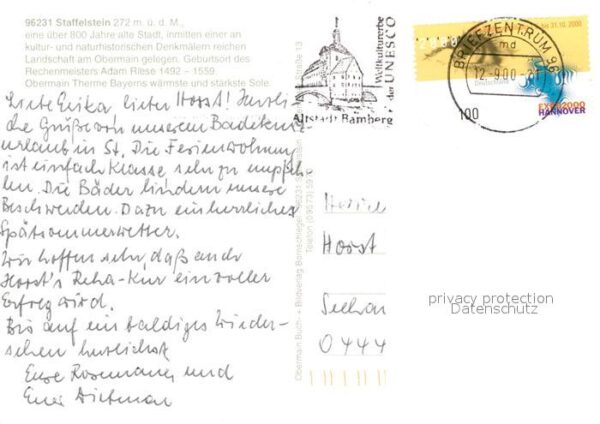 96231 Staffelstein 272 m. ü. d. M.,
eine über 800 Jahre alte Stadt, inmitten einer an
kultur- und naturhistorischen Denkmälern reichen
Landschaft am Obermain gelegen. Geburtsort des
Rechenmeisters Adam Riese 1492 - 1559.
Obermain Therme Bayerns wärmste und stärkste Sole.
Liebe Erika lieber Horst! Herzli-
che Grüße von unserem Badekur-
urlaub in St. Die Ferienwohnung
ist einfach Klasse sehr zu empfeh-
len. Die Bäder lindern unsere
Beschwerden. Dazu ein herrliches
Spätsommerwetter.
Wir hoffen sehr, daß auch
Horst's Reha-Kur ein voller
Erfolg wird.
Bis auf ein baldiges Wieder-
sehen herzlichst
Eure Rosemarie und
Euer Dietmar
Obermain Buch- + Bildverlag Bornschlegel, 96231 Staffelstein
Telefon
Altstadt Bamberg
Weltkulturerbe
der UNESCO
BRIEFZENTRUM 96
md
12.-9.00-21
bis 31.10.2000
Deutschland
EXPO2000
HANNOVER
100
Horst
0444
privacy protection
Datenschutz